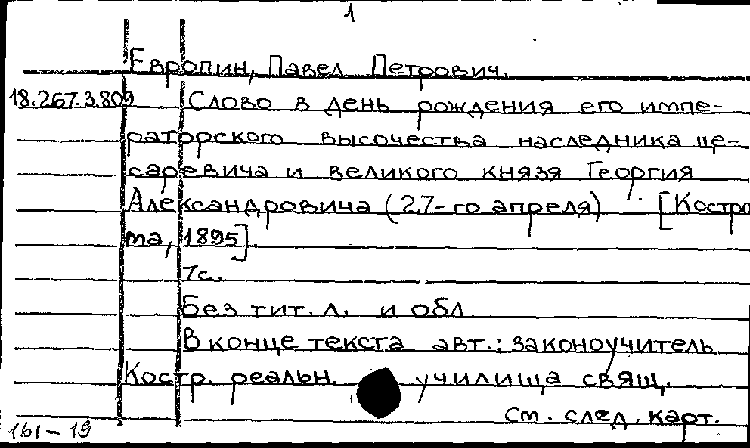 1
Европин, Павел Петрович.
18.267.3.809 Слово в день рождения его импе-
раторского высочества наследника це-
саревича и великого князя Георгия
Александровича (27-го апреля). [Костро
ма, 1895].
7с.
Без тит. л. и обл
В конце текста авт.: законоучитель
Костр. реальн. училища свящ.
См. след. карт.
161-19